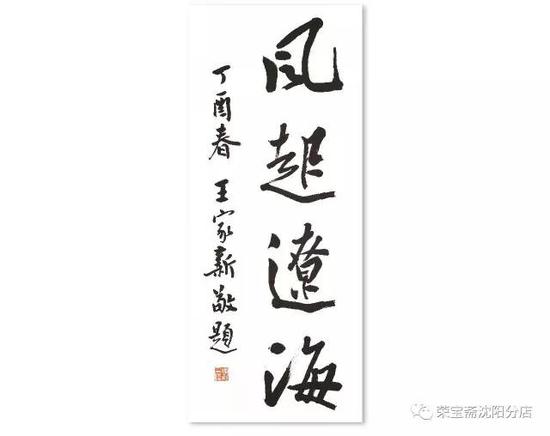 风起遼海
丁酉春 王家新敬題
荣宝斋沈阳分店